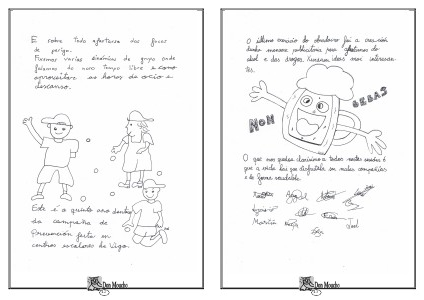 E sobre todo afastarse dos focos
de perigo.
Fixemos varias dinámicas de grupo onde
falamos do noso tempo libre e como
aproveitare as horas de ocio e
descanso.
Este é o quinto ano dentro
da campaña de
Prevención feita en
centros escolares de Vigo.
Don Moucho
O último exercicio do obradoiro foi a creación
dunha mensaxe publicitaria para afastarnos do
alcol e das drogas. Xurdiron ideas moi interesan-
tes.
NON BEBAS
O que nos quedou clarísimo a todos nestas sesións é
que a vida hai que disfrutala sen malas compañías
e de forma saudable.
Don Moucho